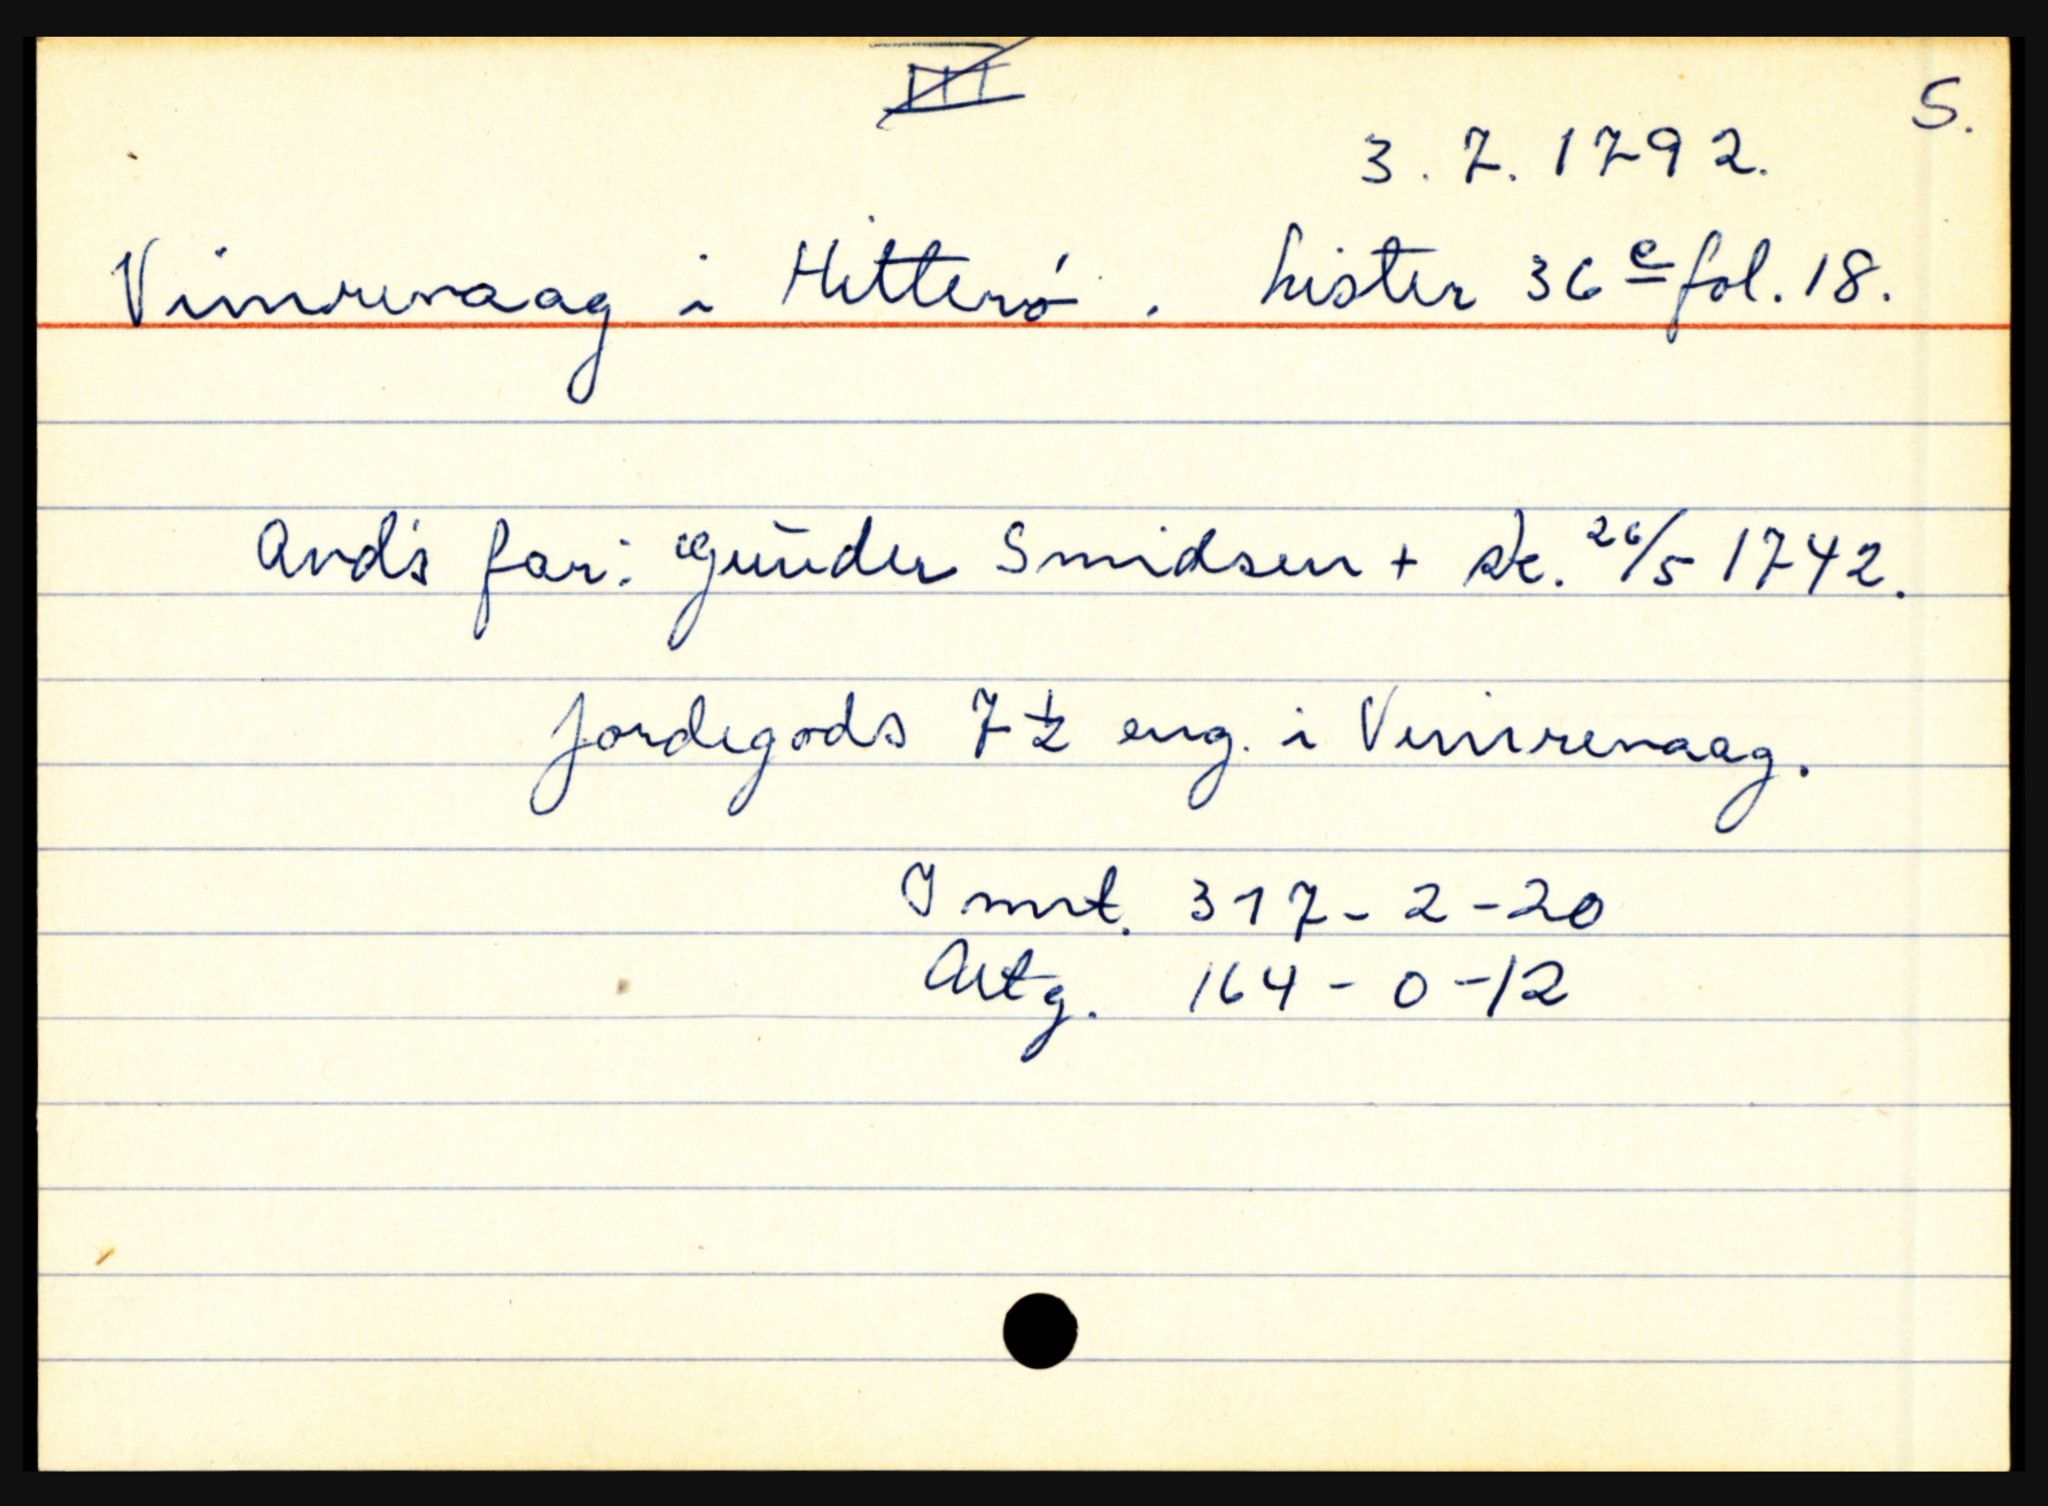 III
S.
3. 7. 1792.
Vimrevaag i Hitterø. Lister 36 e fol. 18.
Avd's far: Gŭnder Smidsen + sk. 26/5 1742.
Jordegods 7 1/2 eng. i Vimrevaag.
I mrt. 317 - 2 - 20
Artg. 164 - 0 - 12